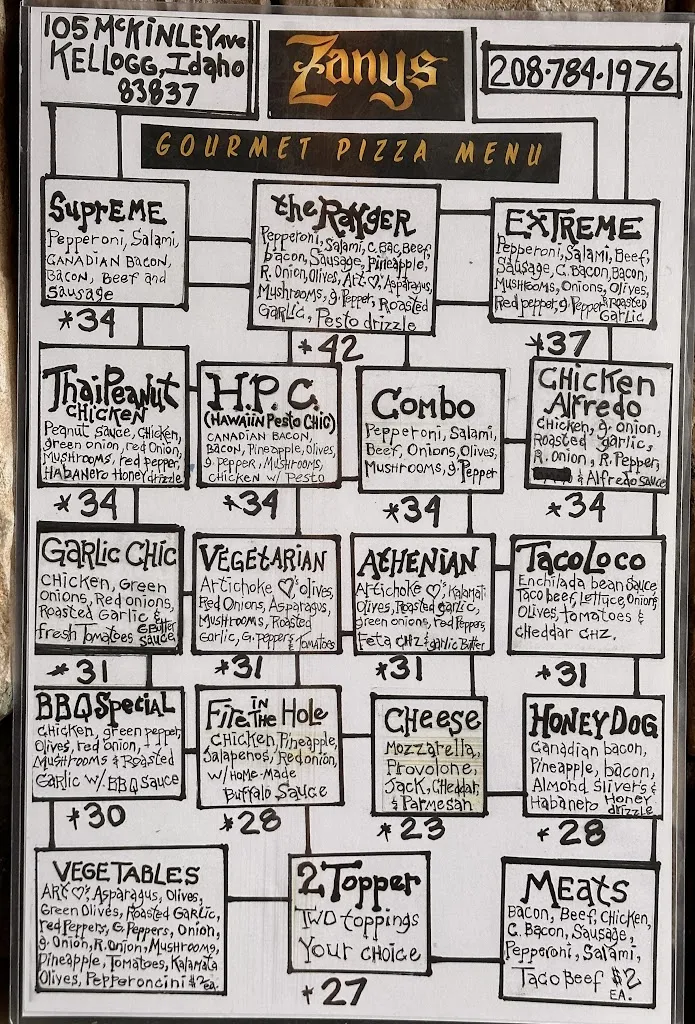 105 McKINLEY Ave
KELLOGG, Idaho
83837
Zanys
208-784-1976
GOURMET PIZZA MENU
SuprEME
Pepperoni, Salami,
CANADIAN BACON,
Bacon, Beef and
Sausage
*34
the RaYger
Pepperoni, Salami, C. Bac, Beef,
bacon, Sausage, Pineapple,
R. Onion, Olives, Art ♡'s, Asparagus,
Mushrooms, g. Pepper, Roasted
Garlic, Pesto drizzle
*42
EXTREME
Pepperoni, Salami, Beef,
Sausage, C. Bacon, Bacon,
Mushrooms, Onions, Olives,
Red pepper, g. Pepper & Roasted
Garlic
*37
Thai Peanut
CHICKEN
Peanut Sauce, Chicken,
green onion, red Onion,
Mushrooms, red Pepper,
HABANero Honey drizzle
*34
H.P.C.
(HAWAIIN Pesto CHIC)
CANADIAN BACON,
Bacon, Pineapple, Olives,
g. pepper, Mushrooms,
Chicken w/ Pesto
*34
Combo
Pepperoni, Salami,
Beef, Onions, Olives,
Mushrooms, g. Pepper
*34
CHicken
Alfredo
chicken, g. onion,
Roasted garlic,
R. onion, R. Pepper,
& Alfredo Sauce
*34
GArlic CHIC
CHicken, Green
Onions, Red onions,
Roasted Garlic &
fresh Tomatoes G Butter
Sauce
*31
VEGETARIAN
Artichoke ♡'s, olives,
Red Onions, Asparagus,
Mushrooms, Roasted
Garlic, G. peppers & Tomatoes
*31
AtHENIAN
Artichoke ♡'s, Kalamati
Olives, Roasted garlic,
green onions, red Peppers,
Feta CHZ & garlic Butter
*31
TacoLoco
Enchilada bean Sauce
Taco beef, Lettuce, Onions
Olives, tomatoes &
cheddar CHZ.
*31
BBQ Special
CHicken, green pepper,
Olives, red onion,
Mushrooms & Roasted
Garlic w/ BBQ Sauce
*30
Fire in the Hole
CHicken, Pineapple,
Jalapenos, Red onion,
w/Home-Made
Buffalo Sauce
*28
CHeese
Mozzarella,
Provolone,
Jack, Cheddar,
& Parmesan
*23
HONEY DOG
Canadian bacon,
Pineapple, bacon,
Almond Slivers &
Habanero Honey
drizzle
*28
VEGETABLES
Art ♡'s, Asparagus, Olives,
Green Olives, Roasted Garlic,
red Peppers, G. Peppers, Onion,
g. Onion, R. Onion, Mushrooms,
Pineapple, Tomatoes, Kalamata
Olives, Pepperoncini $2 ea.
2 Topper
Two toppings
Your choice
*27
MEats
Bacon, Beef, Chicken,
C. Bacon, Sausage,
Pepperoni, Salami,
Taco Beef $2
EA.